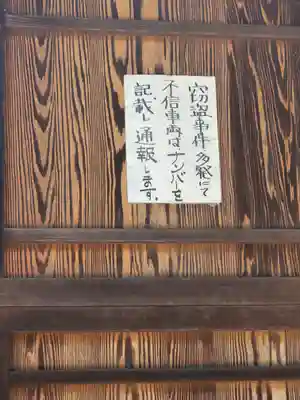 窃盗事件多発にて
不信車両はナンバーを
記載し通報します。